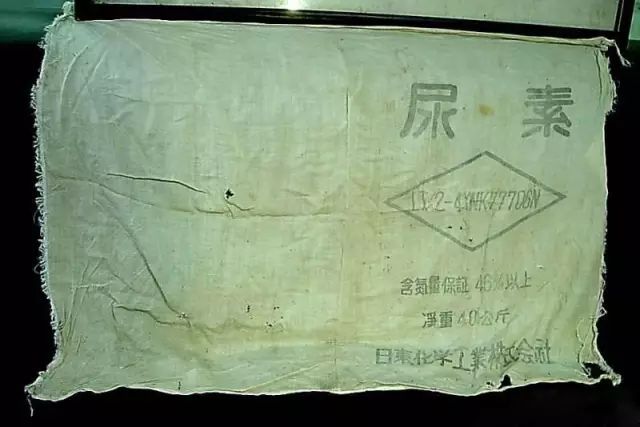 尿素
含氮量保証 46%以上
淨重 40公斤
日東化学工業株式会社